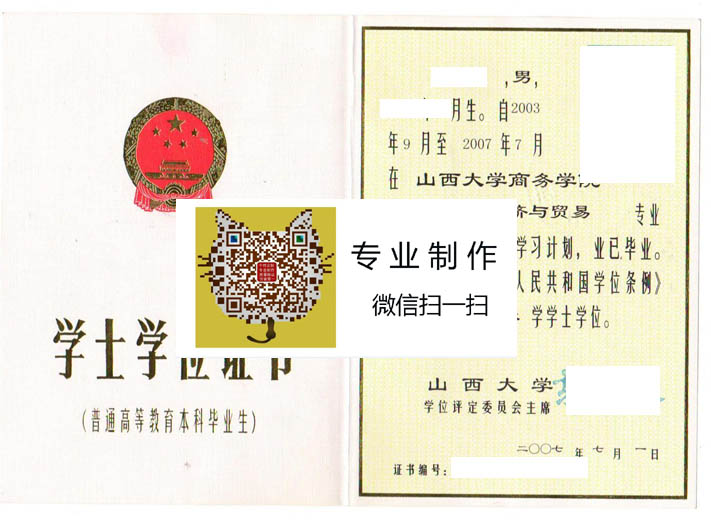 学士学位证书
(普通高等教育本科毕业生)
专业制作
微信扫一扫
,男,
月生。自2003
年9月至 2007年7月
在 山西大学商务学院
济与贸易 专业
学习计划,业已毕业。
人民共和国学位条例》
学学士学位。
山西大学
学位评定委员会主席
二〇〇七年七月一日
证书编号: